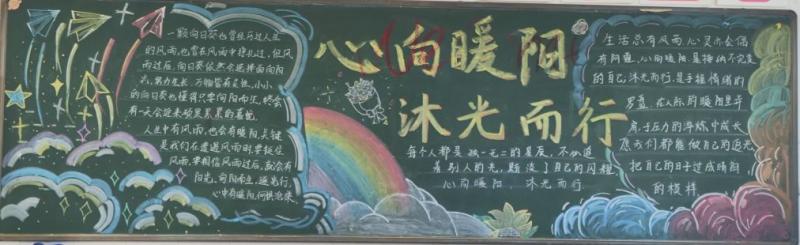 一颗向日葵也曾经历过人生
的风雨,也曾在风雨中挫北过,但风
雨过后,向日葵依然会选择面向阳
光,努力生长,万物皆有
的向日葵也懂得只要向阳而生,终会
有一天会迎来硕果累累的喜悦。
人生中有风雨,也会有暖阳,关键
是我们在遭遇风雨时,要挺住
风雨,要相信风雨过后,就会有
阳光,向阳而生,逐光而行,
心中有暖阳,何惧沧桑
心向暖阳
沐光而行
每个人都是独一无二的星辰,不必追
着别人的光,题淡了自己的闪耀
心向暖阳 沐光而行
生活总有风雨,心灵亦会偶
有阴霾,心向暖阳,是接纳不完美
的自己,沐光而行,是手握情绪的
罗盘,在人际的暖阳里并
肩,于压力的淬炼中成长
愿我们都能做自己的追光
把自己的日子过成晴朗
的模样